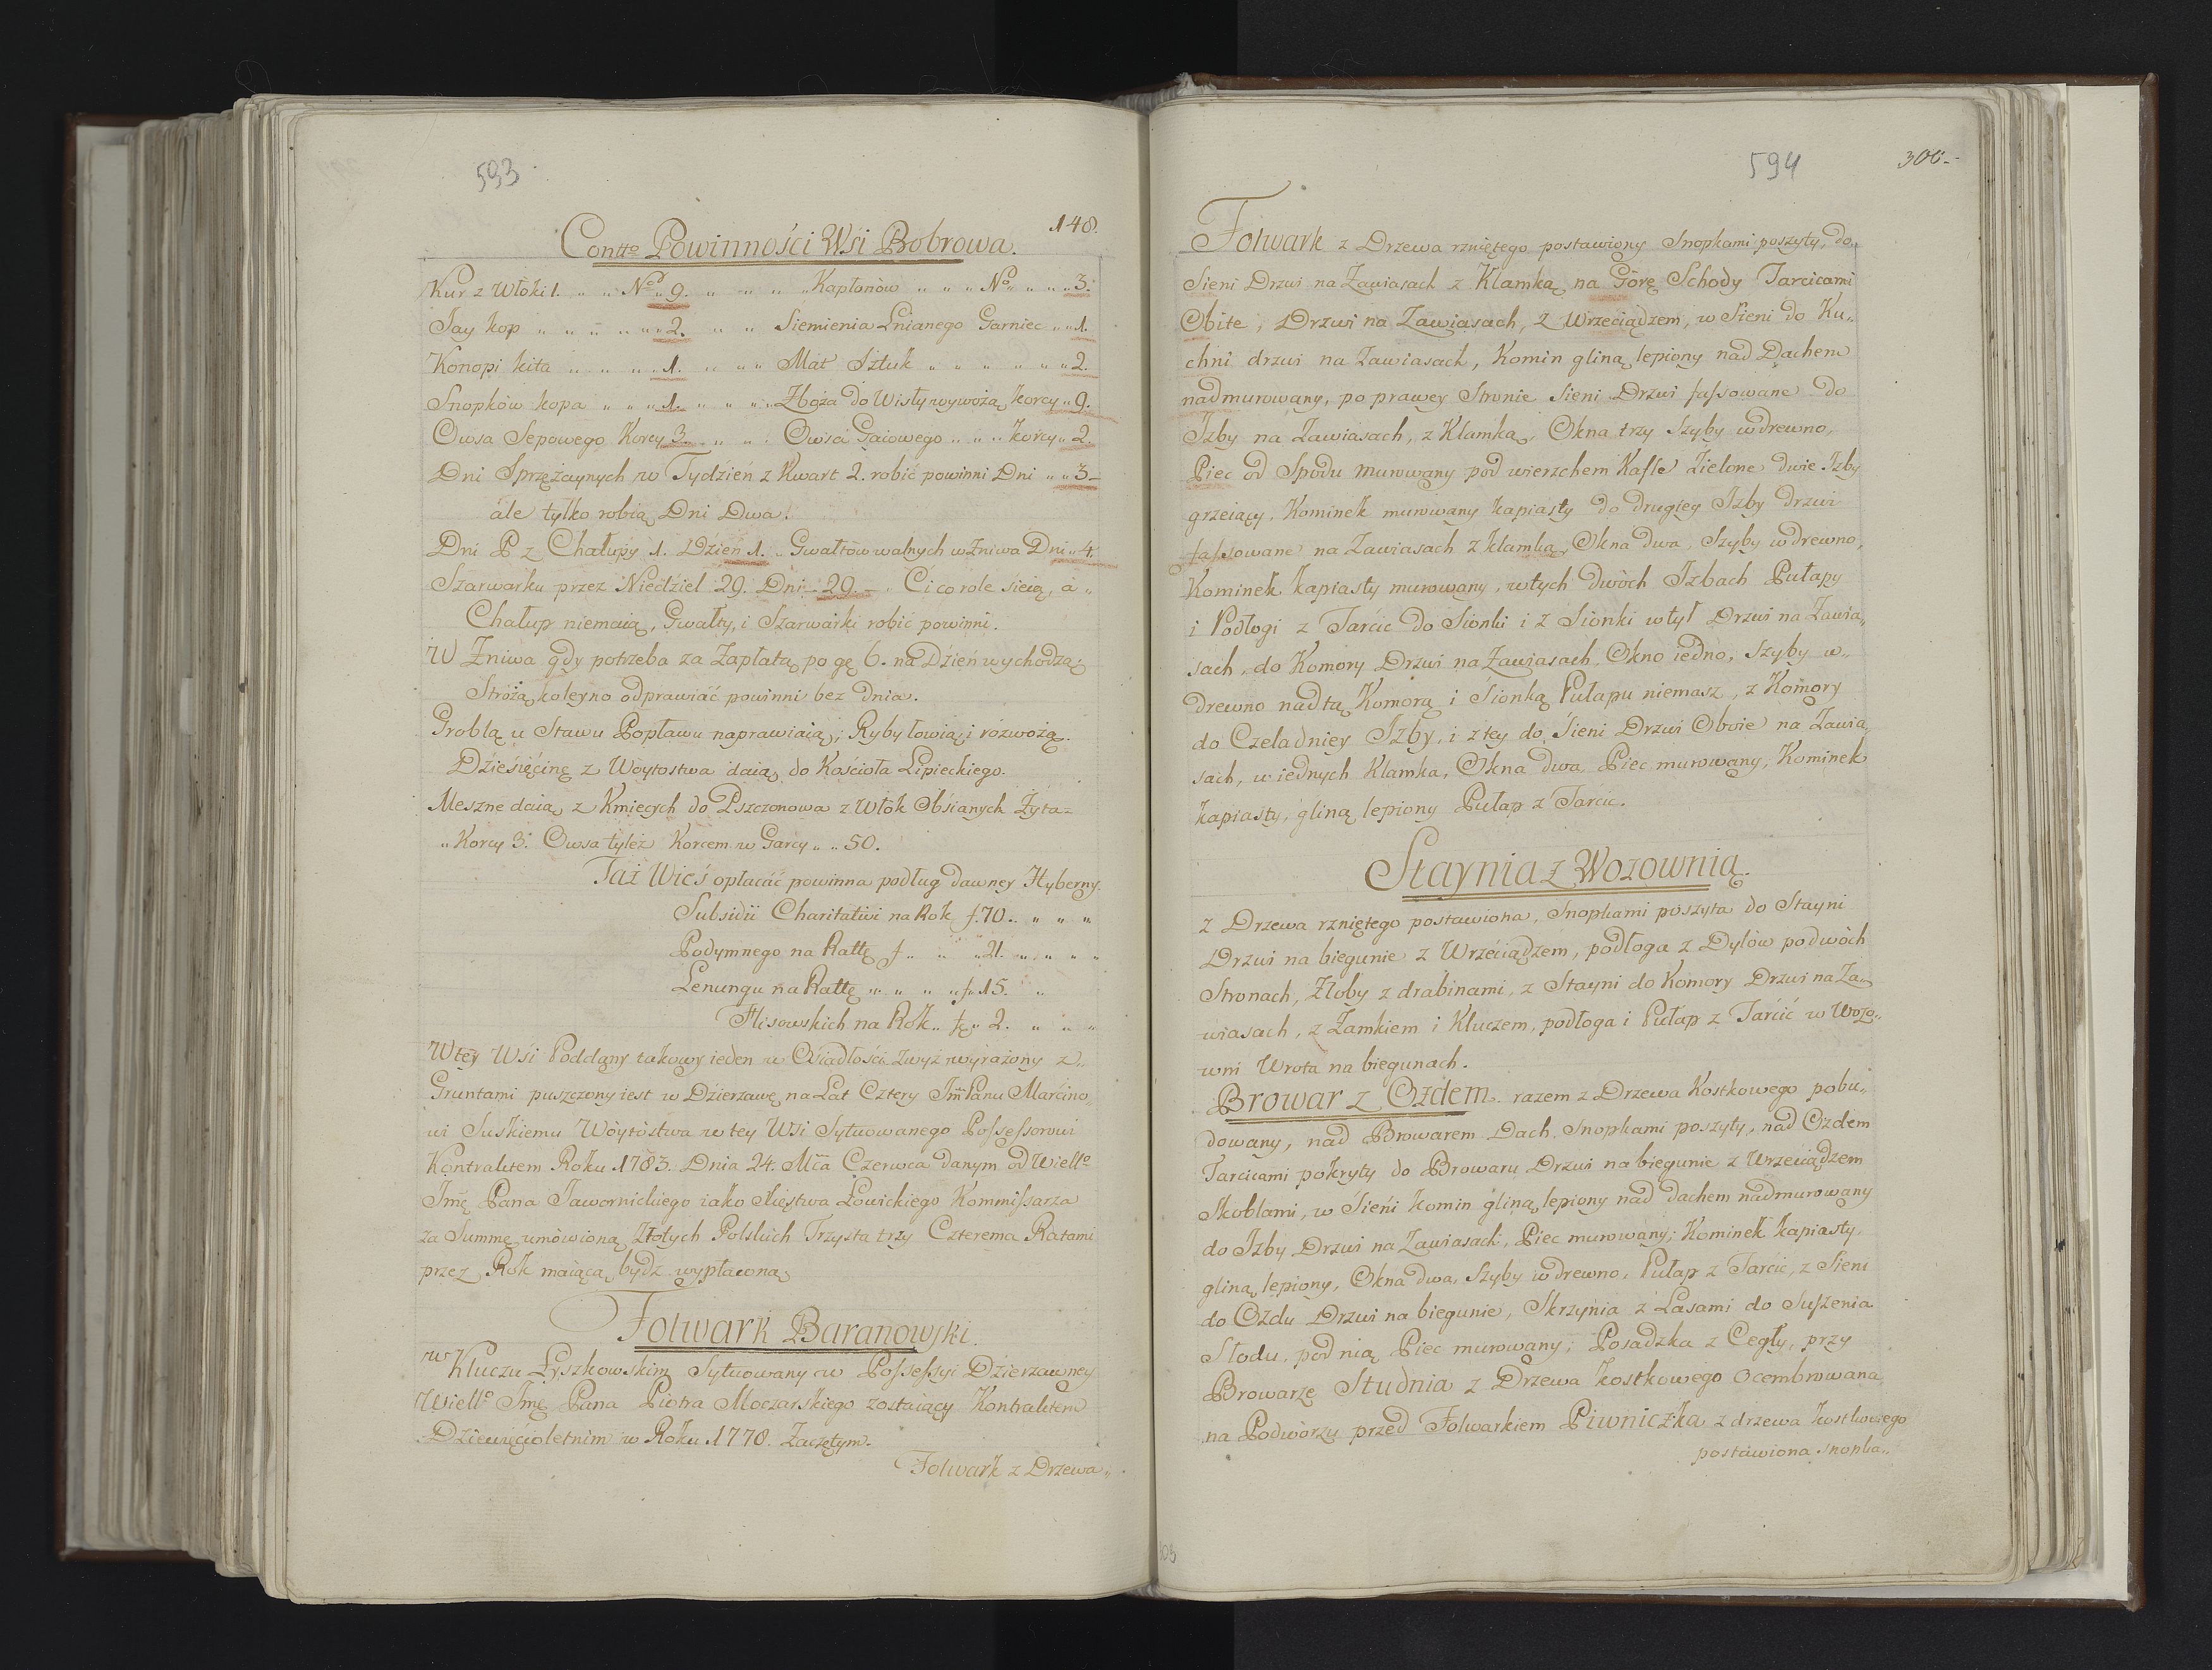 593
148.
Contto Powinności Wsi Bobrowa.
Kur z Włóki 1. „ „ No „ 9. „ „ „ „ Kapłonów „ „ „ No „ „ „ „ 3.
Jay kop „ „ „ „ „ „ 2. „ „ Siemienia Lnianego Garniec „ „ 1.
Konopi kita „ „ „ „ 1. „ „ „ Mat Sztuk „ „ „ „ „ „ 2.
Snopków kopa „ „ „ 1. „ „ „ „ Zboża do Wisły wywożą korcy „ 9.
Owsa Sepowego Korcy 3. „ „ „ Owsa Gaiowego „ „ „ korcy „ 2.
Dni Sprzężaynych w Tydzień z Kwart 2. robić powinni Dni „ „ 3 –
ale tylko robią Dni Dwa.
Dni P z Chałupy 1. Dzień 1. „ Gwałtów walnych w Żniwa Dni „ 4.
Szarwarku przez Niedziel 29. Dni – 29. – . Ci co role sieią, a „
Chałup niemaią, Gwałty, i Szarwarki robić powinni.
W Żniwa gdy potrzeba za Zapłatą po gę 6. na Dzień wychodzą;
Stróżą koleyno odprawiać powinni bez dnia.
Groblą u Stawu Popławu naprawiaią; Ryby łowią i rózwożą.
Dziesięcinę z Woytostwa daią do Kościoła Lipieckiego.
Meszne daią z Kmiecych do Pszczonowa z Włók Obsianych Żyta =
„ Korcy 3. Owsa tyleż Korcem w Garcy „ „ 50.
Taż Wieś opłacać powinna podług dawney Hyberny.
Subsidii Charitativi na Rok f. 70 „ „ „ „
Podymnego na Rattę f „ „ „ 21. „ „ „ „
Lenungu na Rattę „ „ „ „ f. 15. „
Flisowskich na Rok „ f „ 2. „ „ „
W tey Wsi Poddany takowy ieden w Osiadłości zwyż wyrażony z „
Gruntami puszczony iest w Dzierzawę na Lat Cztery Jmc Panu Marcino „
wi Suskiemu Wóytóstwa w tey Wsi Sytuowanego Possessorowi
Kontraktem Roku 1783. Dnia 24. Mca Czerwca danym od Wiello
Jmę Pana Jawornickiego iako Xięstwa Łowickiego Kommissarza
za Summę umówioną Złotych Polskich Trzysta trzy Czterema Ratami
przez Rok maiącą bydz wypłaconą;
Folwark Baranowski.
w Kluczu Łyszkowskim Sytuowany w Possessyi Dzierzawney
Wiello Jmę Pana Piotra Moczarskiego zostaiący Kontraktem
Dziewięcioletnim w Roku 1778. Zaczętym.
Folwark z Drzewa „
594
300 –
Folwark z Drzewa rzniętego postawiony Snopkami poszyty, do
Sieni Drzwi na Zawiasach z Klamką na Górę Schody Tarcicami
Obite, Drzwi na Zawiasach, z Wrzeciądzem, w Sieni do Ku „
chni drzwi na Zawiasach, Komin gliną lepiony nad Dachem
nadmurowany, po prawey Stronie Sieni Drzwi fassowane do
Izby na Zawiasach, z Klamką, Okna trzy Szyby w drewno,
Piec od Spodu murowany pod wierzchem Kafle Zielone dwie Izby
grzeiący, Kominek murowany kapiasty do drugiey Izby drzwi
fassowane na Zawiasach z klamką, Okna dwa, Szyby w drewno,
Kominek kapiasty murowany, w tych dwóch Izbach Pułapy
i Podłogi z Tarcic do Sionki i z Sionki w tył Drzwi na Zawia „
sach, do Komory Drzwi na Zawiasach, Okno iedno, Szyby w „
drewno nad tą Komorą i Sionką Pułapu niemasz, z Komory
do Czeladniey Izby, i z tey do Sieni Drzwi Oboie na Zawia „
sach, u iednych Klamka, Okna dwa Piec murowany, Kominek
kapiasty, gliną lepiony Pułap z Tarcic.
Staynia z Wozownią.
z Drzewa rzniętego postawiona, Snopkami poszyta do Stayni
Drzwi na biegunie z Wrzeciądzem, podłoga z Dylów po dwóch
Stronach, Żłoby z drabinami, z Stayni do Komory Drzwi na Za
wiasach, z Zamkiem i Kluczem, podłoga i Pułap z Tarcic w Wozo „
wni Wrota na biegunach.
Browar z Ozdem razem z Drzewa Kostkowego pobu „
dowany, nad Browarem Dach Snopkami poszyty, nad Ozdem
Tarcicami pokryty do Browaru Drzwi na biegunie z Wrzeciądzem
Skoblami, w Sieni komin gliną lepiony nad dachem nadmurowany
do Izby Drzwi na Zawiasach, Piec murowany; Kominek kapiasty,
gliną lepiony, Okna dwa, Szyby w drewno, Pułap z Tarcic, z Sieni
do Ozdu Drzwi na biegunie, Skrzynia z Lasami do Suszenia
Słodu, pod nią Piec murowany; Posadzka z Cegły, przy
Browarze Studnia z Drzewa kostkowego Ocembrowana,
na Podworzu przed Folwarkiem Piwniczka z drzewa kostkowego
postawiona snopka „